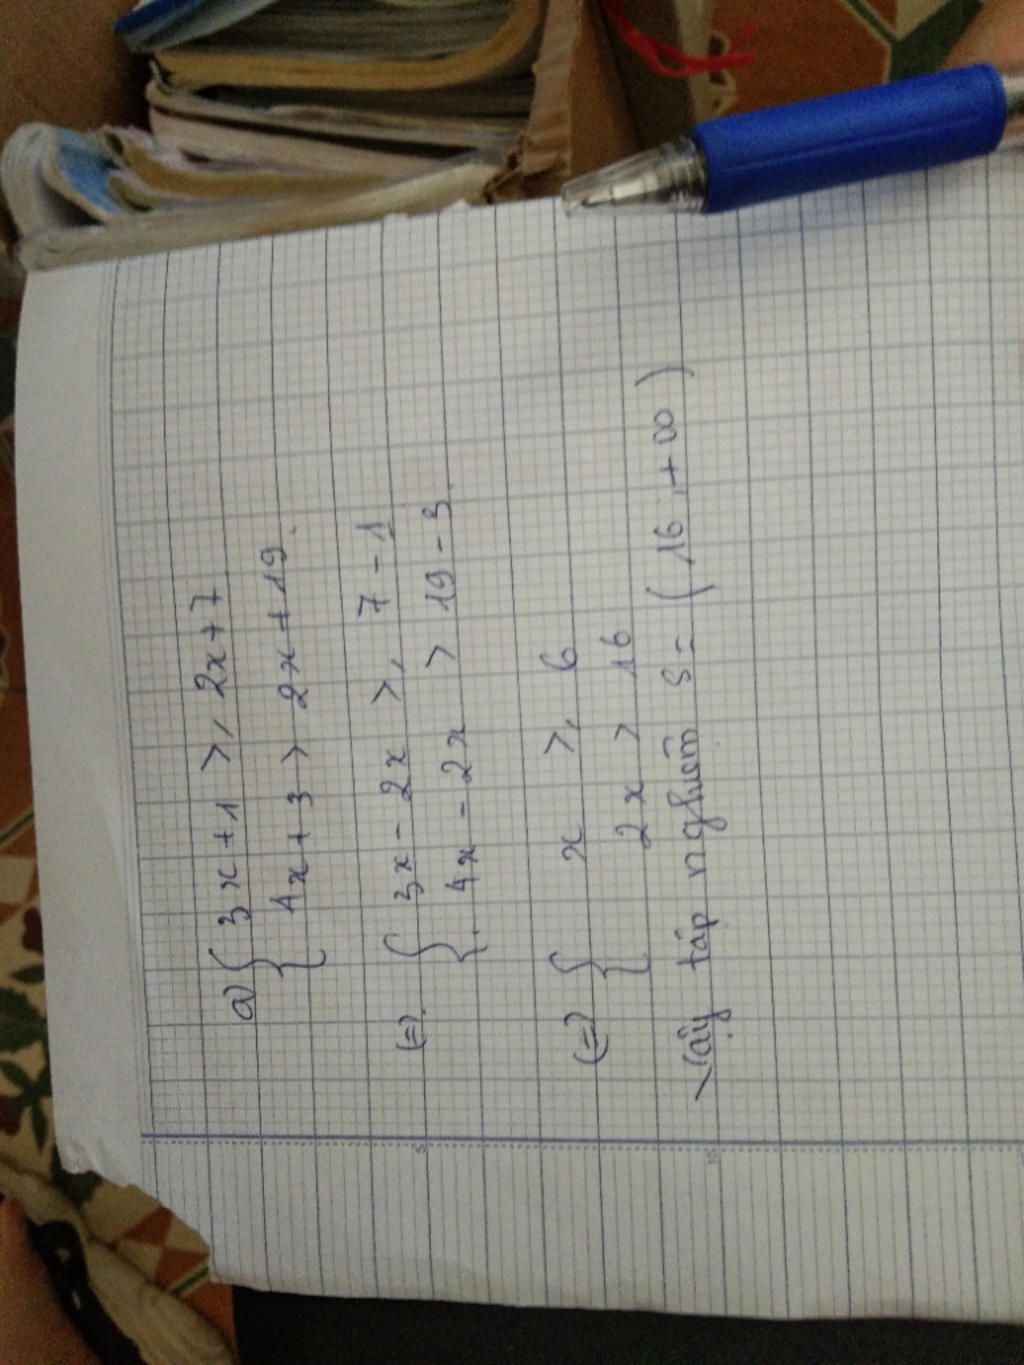 a) { 3x + 1 ≥ 2x + 7
4x + 3 > 2x + 19.
(=) { 3x - 2x ≥ 7 - 1
4x - 2x > 19 - 3
(=) { x ≥ 6
2x > 16
Vậy tập nghiệm S = (16, +∞)
5
10